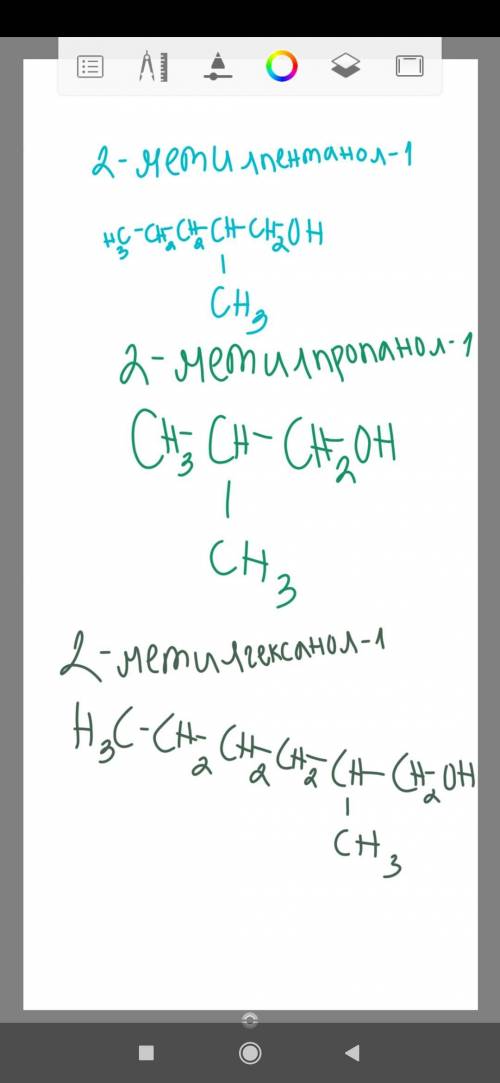 2-метилпентанол-1
H3C-CH2-CH2-CH-CH2OH
|
CH3
2-метилпропанол-1
CH3-CH-CH2OH
|
CH3
2-метилгексанол-1
H3C-CH2-CH2-CH2-CH-CH2OH
|
CH3